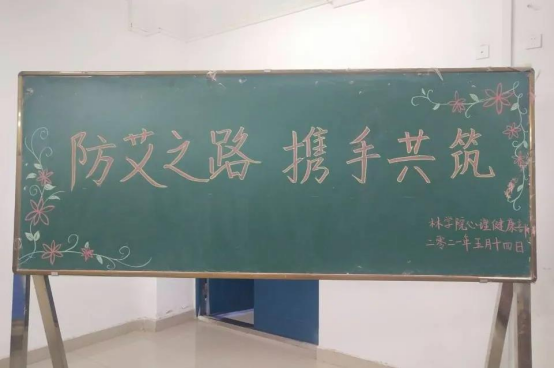 防艾之路 携手共筑
林学院心理健康部
二零二一年五月十四日